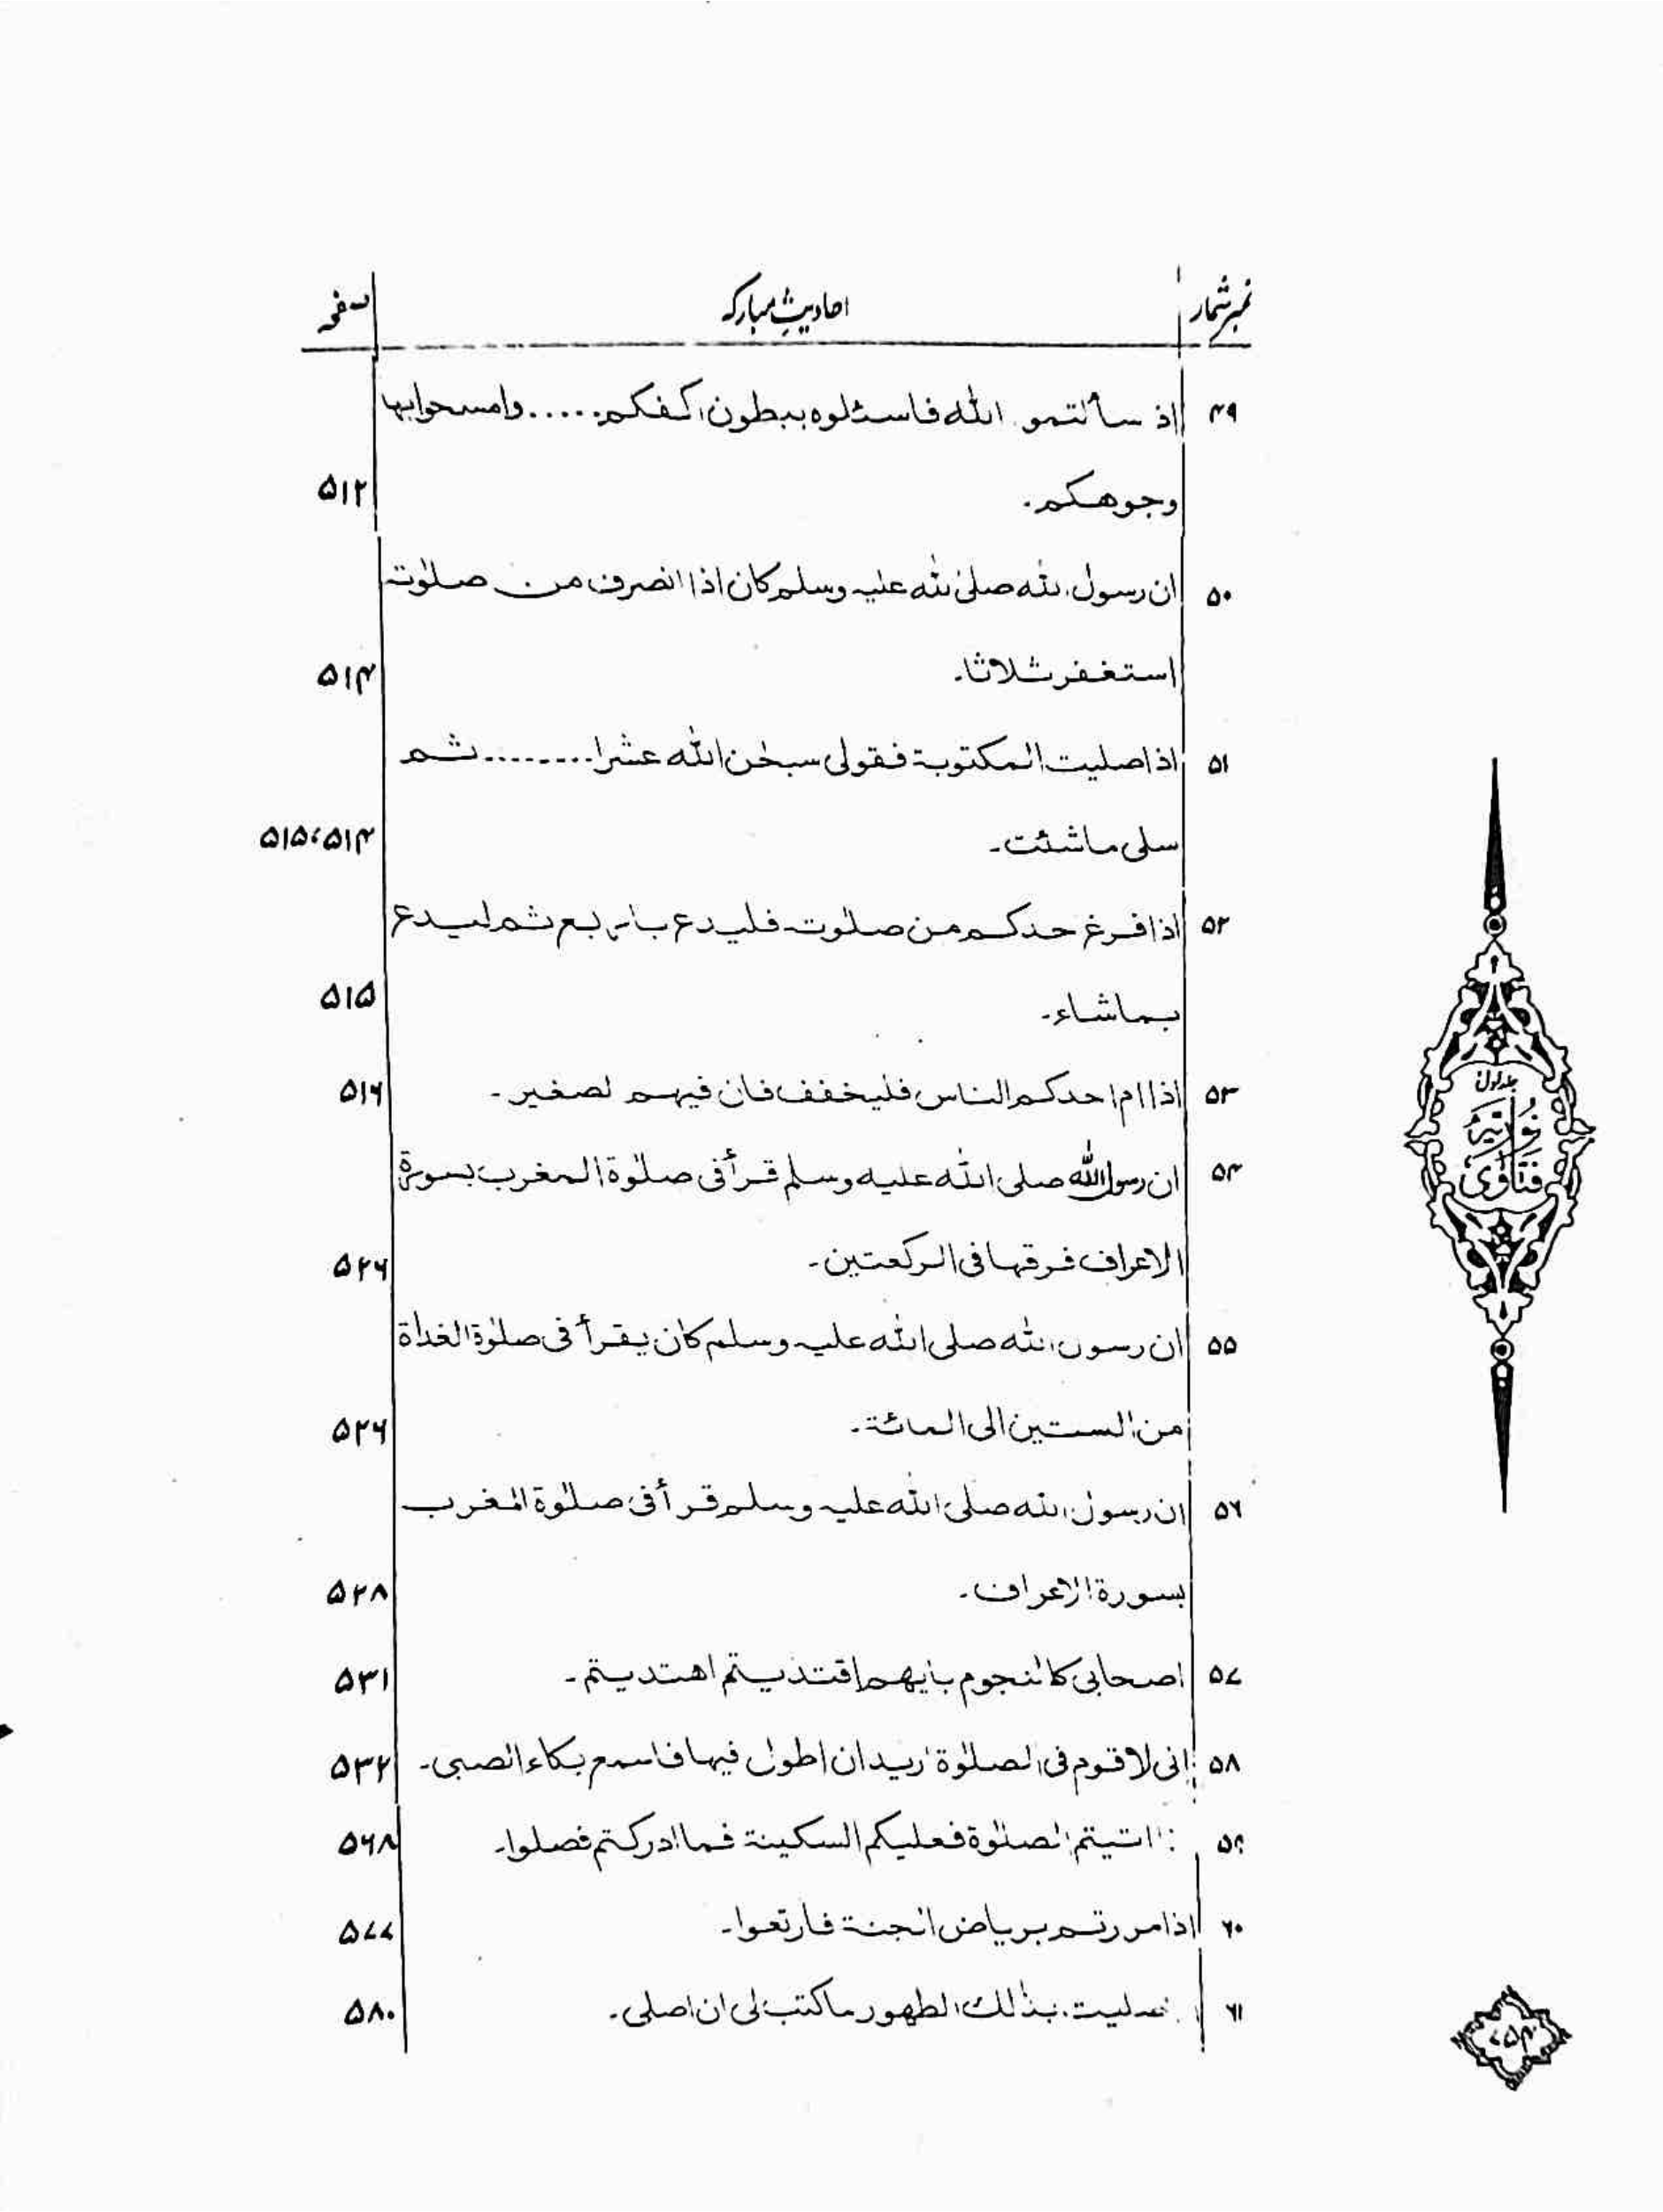 نمبر شمار احادیثِ مبارکہ صفحہ
۴۹ اذ سألتمو الله فاسئلوه ببطون اكفكم..... وامسحوابها
وجوهكم. ۵۱۲
۵۰ ان رسول الله صلى الله عليه وسلم كان اذا انصرف من صلوٰته
استغفر ثلاثا۔ ۵۱۴
۵۱ اذا صليت المكتوبة فقولى سبحٰن الله عشرا........ ثم
سلى ماشئت۔ ۵۱۴، ۵۱۵
۵۲ اذا فرغ احدكم من صلوٰته فليدع باربع ثم ليدع
بماشاء۔ ۵۱۵
۵۳ اذا ام احدكم الناس فليخفف فان فيهم الصغير۔ ۵۱۶
۵۴ ان رسول الله صلى الله عليه وسلم قرأ فى صلوٰة المغرب بسورة
الاعراف فرقها فى الركعتين۔ ۵۲۶
۵۵ ان رسول الله صلى الله عليه وسلم كان يقرأ فى صلوٰة الغداة
من الستين الى المائة۔ ۵۲۶
۵۶ ان رسول الله صلى الله عليه وسلم قرأ فى صلوٰة المغرب
بسورة الاعراف۔ ۵۲۸
۵۷ اصحابى كالنجوم بايهم اقتديتم اهتديتم۔ ۵۳۱
۵۸ انى لاقوم فى الصلوٰة اريد ان اطول فيها فاسمع بكاء الصبى۔ ۵۳۲
۵۹ اتيتم الصلوٰة فعليكم السكينة فما ادركتم فصلوا۔ ۵۶۸
۶۰ اذا مررتم برياض الجنة فارتعوا۔ ۵۷۷
۶۱ صليت بذٰلك الطهور ما كتب لى ان اصلى۔ ۵۸۰
جلد اول
فتاوٰی نوریہ